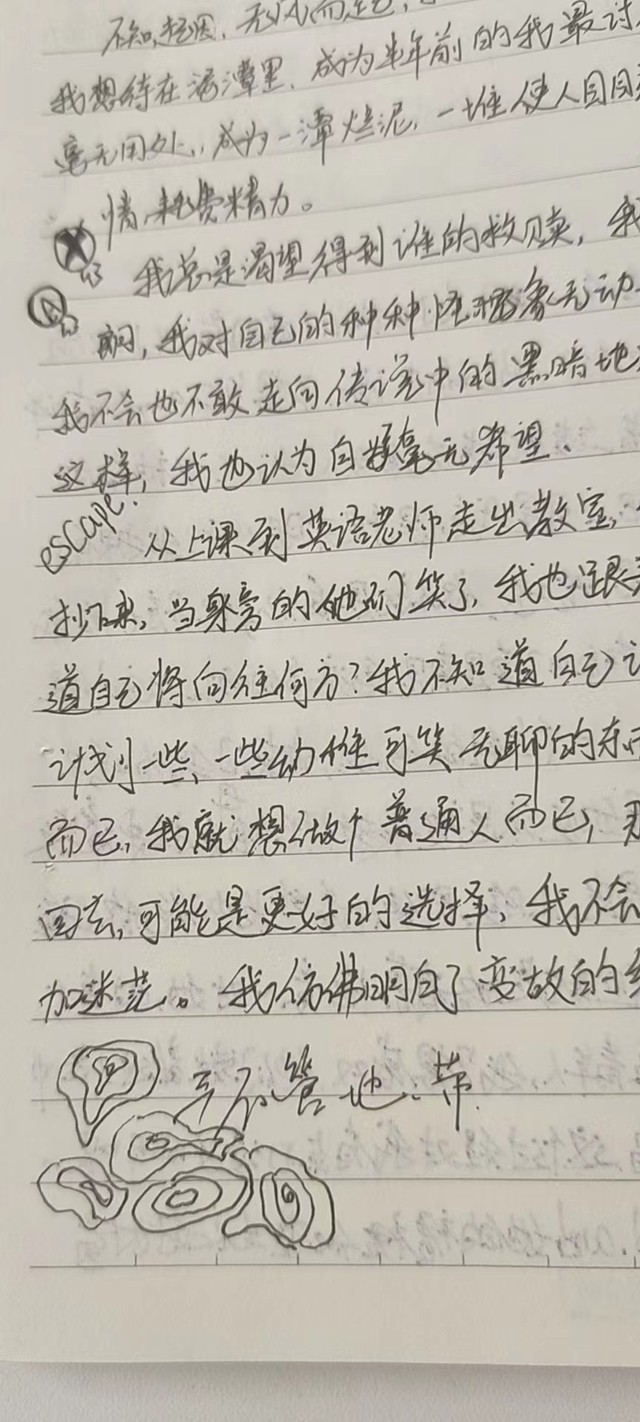 不知起因，无风而起，
我想待在泥潭里，成为半年前的我最讨
毫无用处，成为一潭烂泥，一堆使人目目
情，耗费精力。
我总是渴望得到谁的救赎，我
期，我对自己的种种怪现象无动
我不会也不敢走向传说中的黑暗地
这样，我也认为自己毫无希望、
escape!
从上课到英语老师走出教室，
抄下来，当身旁的他们笑了，我也跟
道自己将向往何方？我不知道自己
计划一些、一些幼稚可笑无聊的东
而已，我就想做个普通人而已，
回去，可能是更好的选择，我不会
加迷茫。我仿佛明白了变故的
三不管地带